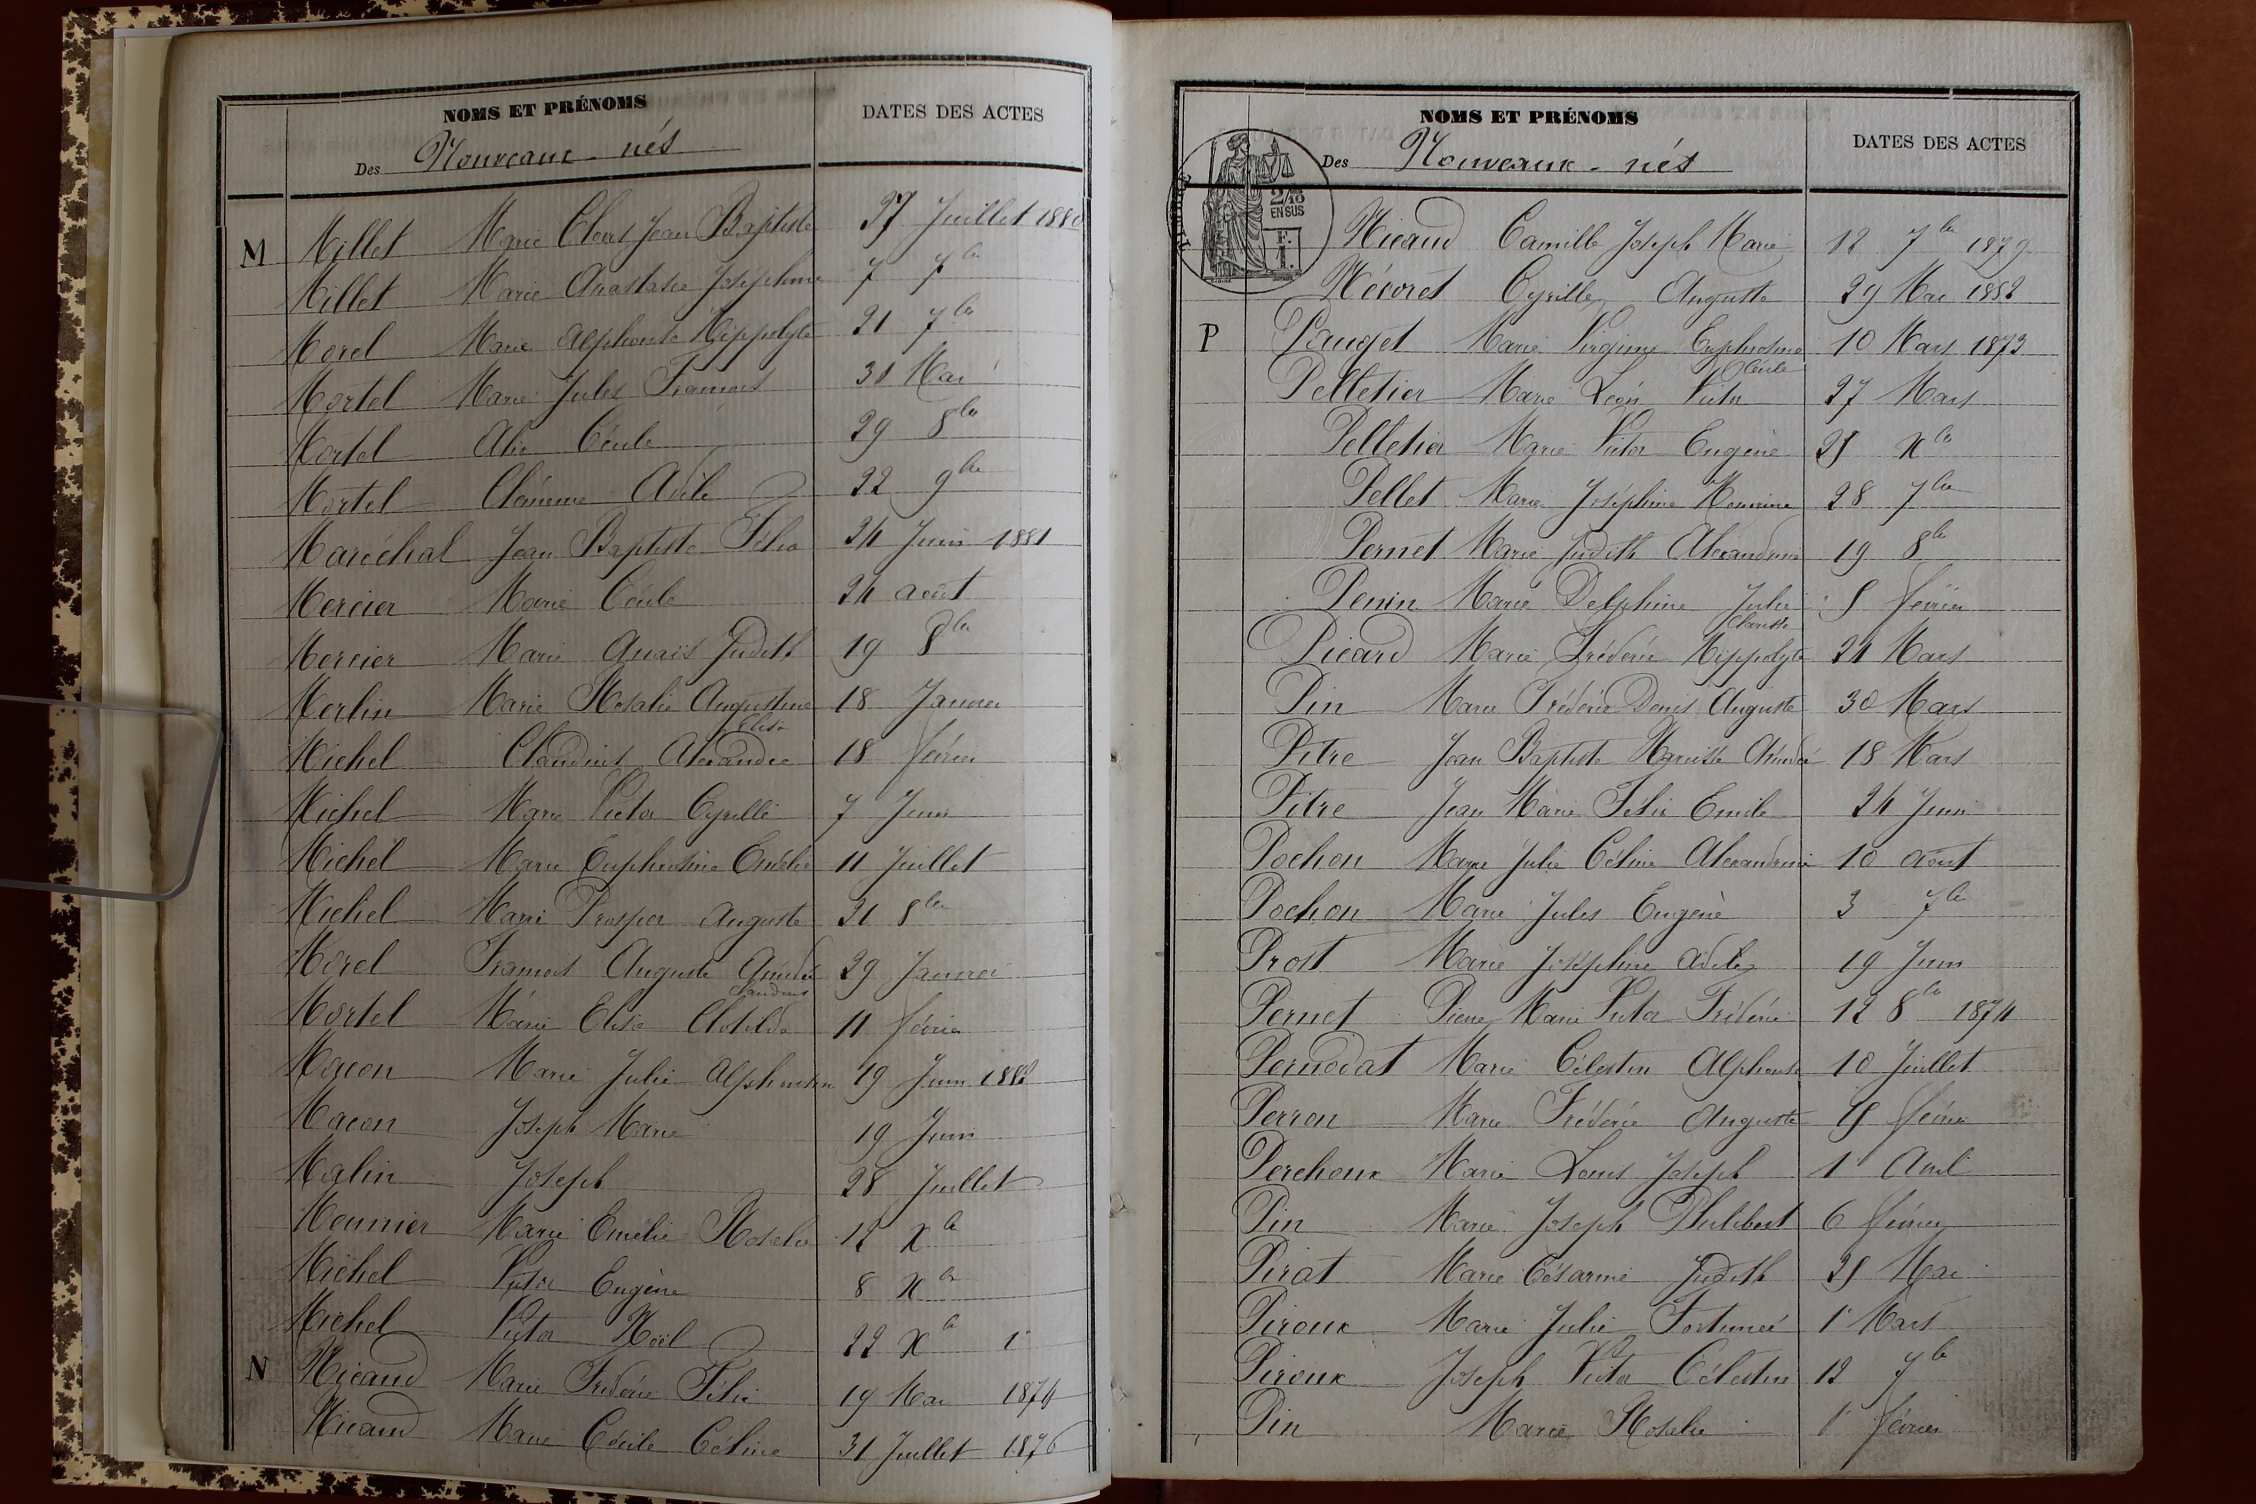 NOMS ET PRÉNOMS
DATES DES ACTES
Des Nouveaux-nés
M Millet Marie Jean Baptiste 27 Juillet 1880
Millet Marie Anastasie Joséphine 7 7bre
Morel Marie Alphonse Hippolyte 21 7bre
Mortel Marie Jules François 31 Mai
Mortel Alix Cécile 29 8bre
Mortel Clémence Adèle 22 9bre
Maréchal Jean Baptiste Félix 24 Juin 1881
Mercier Marie Cécile 24 août
Mercier Marie Anaïs Judith 19 8bre
Merlin Marie Rosalie Augustine 18 Janvier
Elisa
Michel Claudius Alexandre 18 février
Michel Marie Victor Cyrille 7 Juin
Michel Marie Euphrosine Emélie 11 Juillet
Michel Marie Prosper Auguste 21 8bre
Morel François Auguste Amédée 29 Janvier
Mortel Marie Elisa Clotilde 11 février
Macon Marie Julie Alphonsine 19 Juin 1882
Macon Joseph Marie 19 Juin
Malin Joseph 28 Juillet
Meunier Marie Emélie Rosalie 12 Xbre
Michel Victor Eugène 8 Xbre
Michel Victor Noël 22 Xbre
N Nicaud Marie Frédéric Félix 19 Mai 1874
Nicaud Marie Cécile Céline 31 Juillet 1876
NOMS ET PRÉNOMS
DATES DES ACTES
Des Nouveaux-nés
2/10 EN SUS
F. 1.
Nicaud Camille Joseph Marie 12 7bre 1879
Névoret Cyrille Auguste 29 Mai 1882
P Pauget Marie Virginie Euphrosine 10 Mars 1873
Cécile
Pelletier Marie Léon Victor 27 Mars
Pelletier Marie Victor Eugène 25 Xbre
Pellet Marie Joséphine 28 7bre
Pernet Marie Judith Alexandrine 19 8bre
Perrin Marie Delphine Julie 5 février
Clarisse
Picard Marie Frédéric Hippolyte 24 Mars
Pin Marie Frédéric Denis Auguste 30 Mars
Pitre Jean Baptiste 18 Mars
Pitre Jean Marie Félix Emile 24 Juin
Pochon Marie Julie Céline Alexandrine 10 août
Pochon Marie Jules Eugène 3 7bre
Prost Marie Joséphine Adèle 19 Juin
Pernet Pierre Marie Victor Frédéric 12 8bre 1874
Pernodat Marie Célestin Alphonse 10 Juillet
Perron Marie Frédéric Auguste février
Perchoux Marie Louis Joseph 1r Avril
Pin Marie Joseph Philibert 6 février
Pirat Marie Césarine Judith 25 Mai
Piroux Marie Julie Fortunée 1r Mars
Piroux Joseph Victor Célestin 12 7bre
Pin Marie Rosalie 1r février